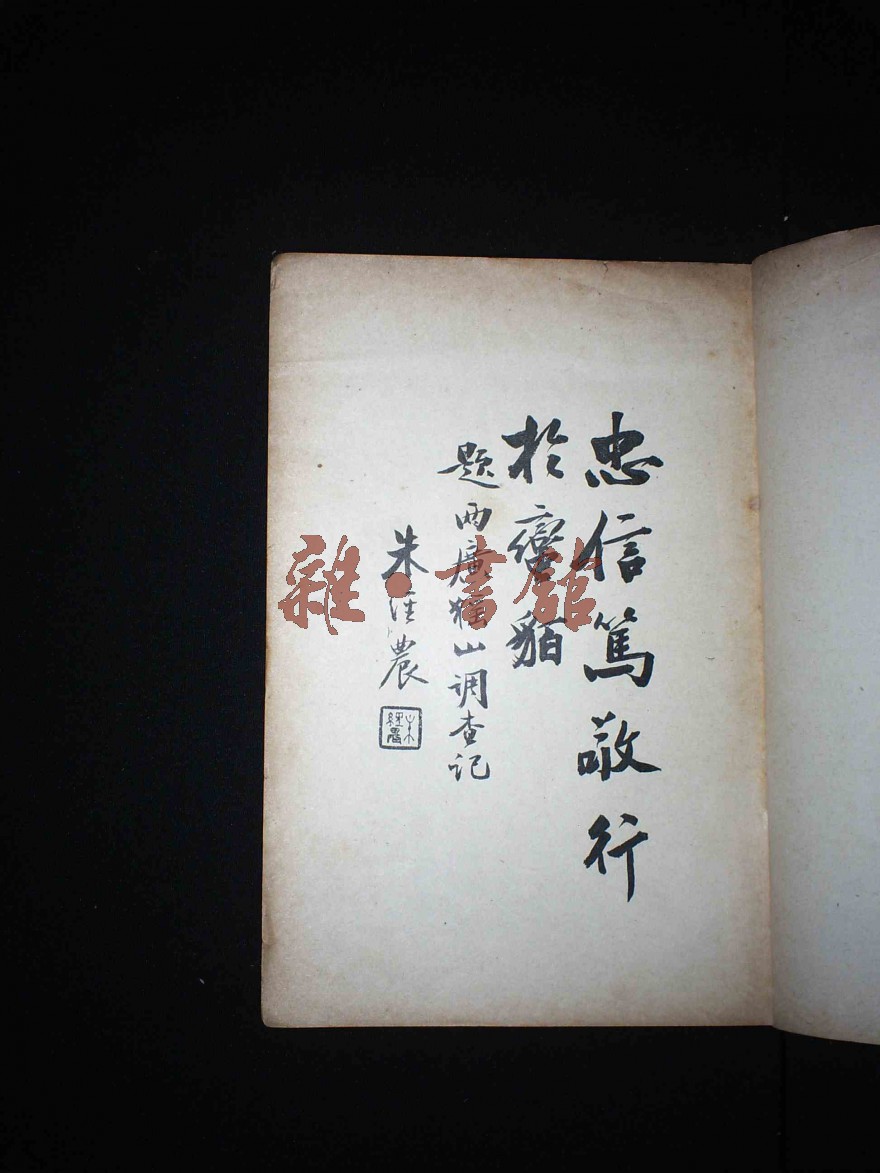 忠信篤敬行
於蠻貊
題兩廣猺山調查記
朱經農
朱經農
雜·書館